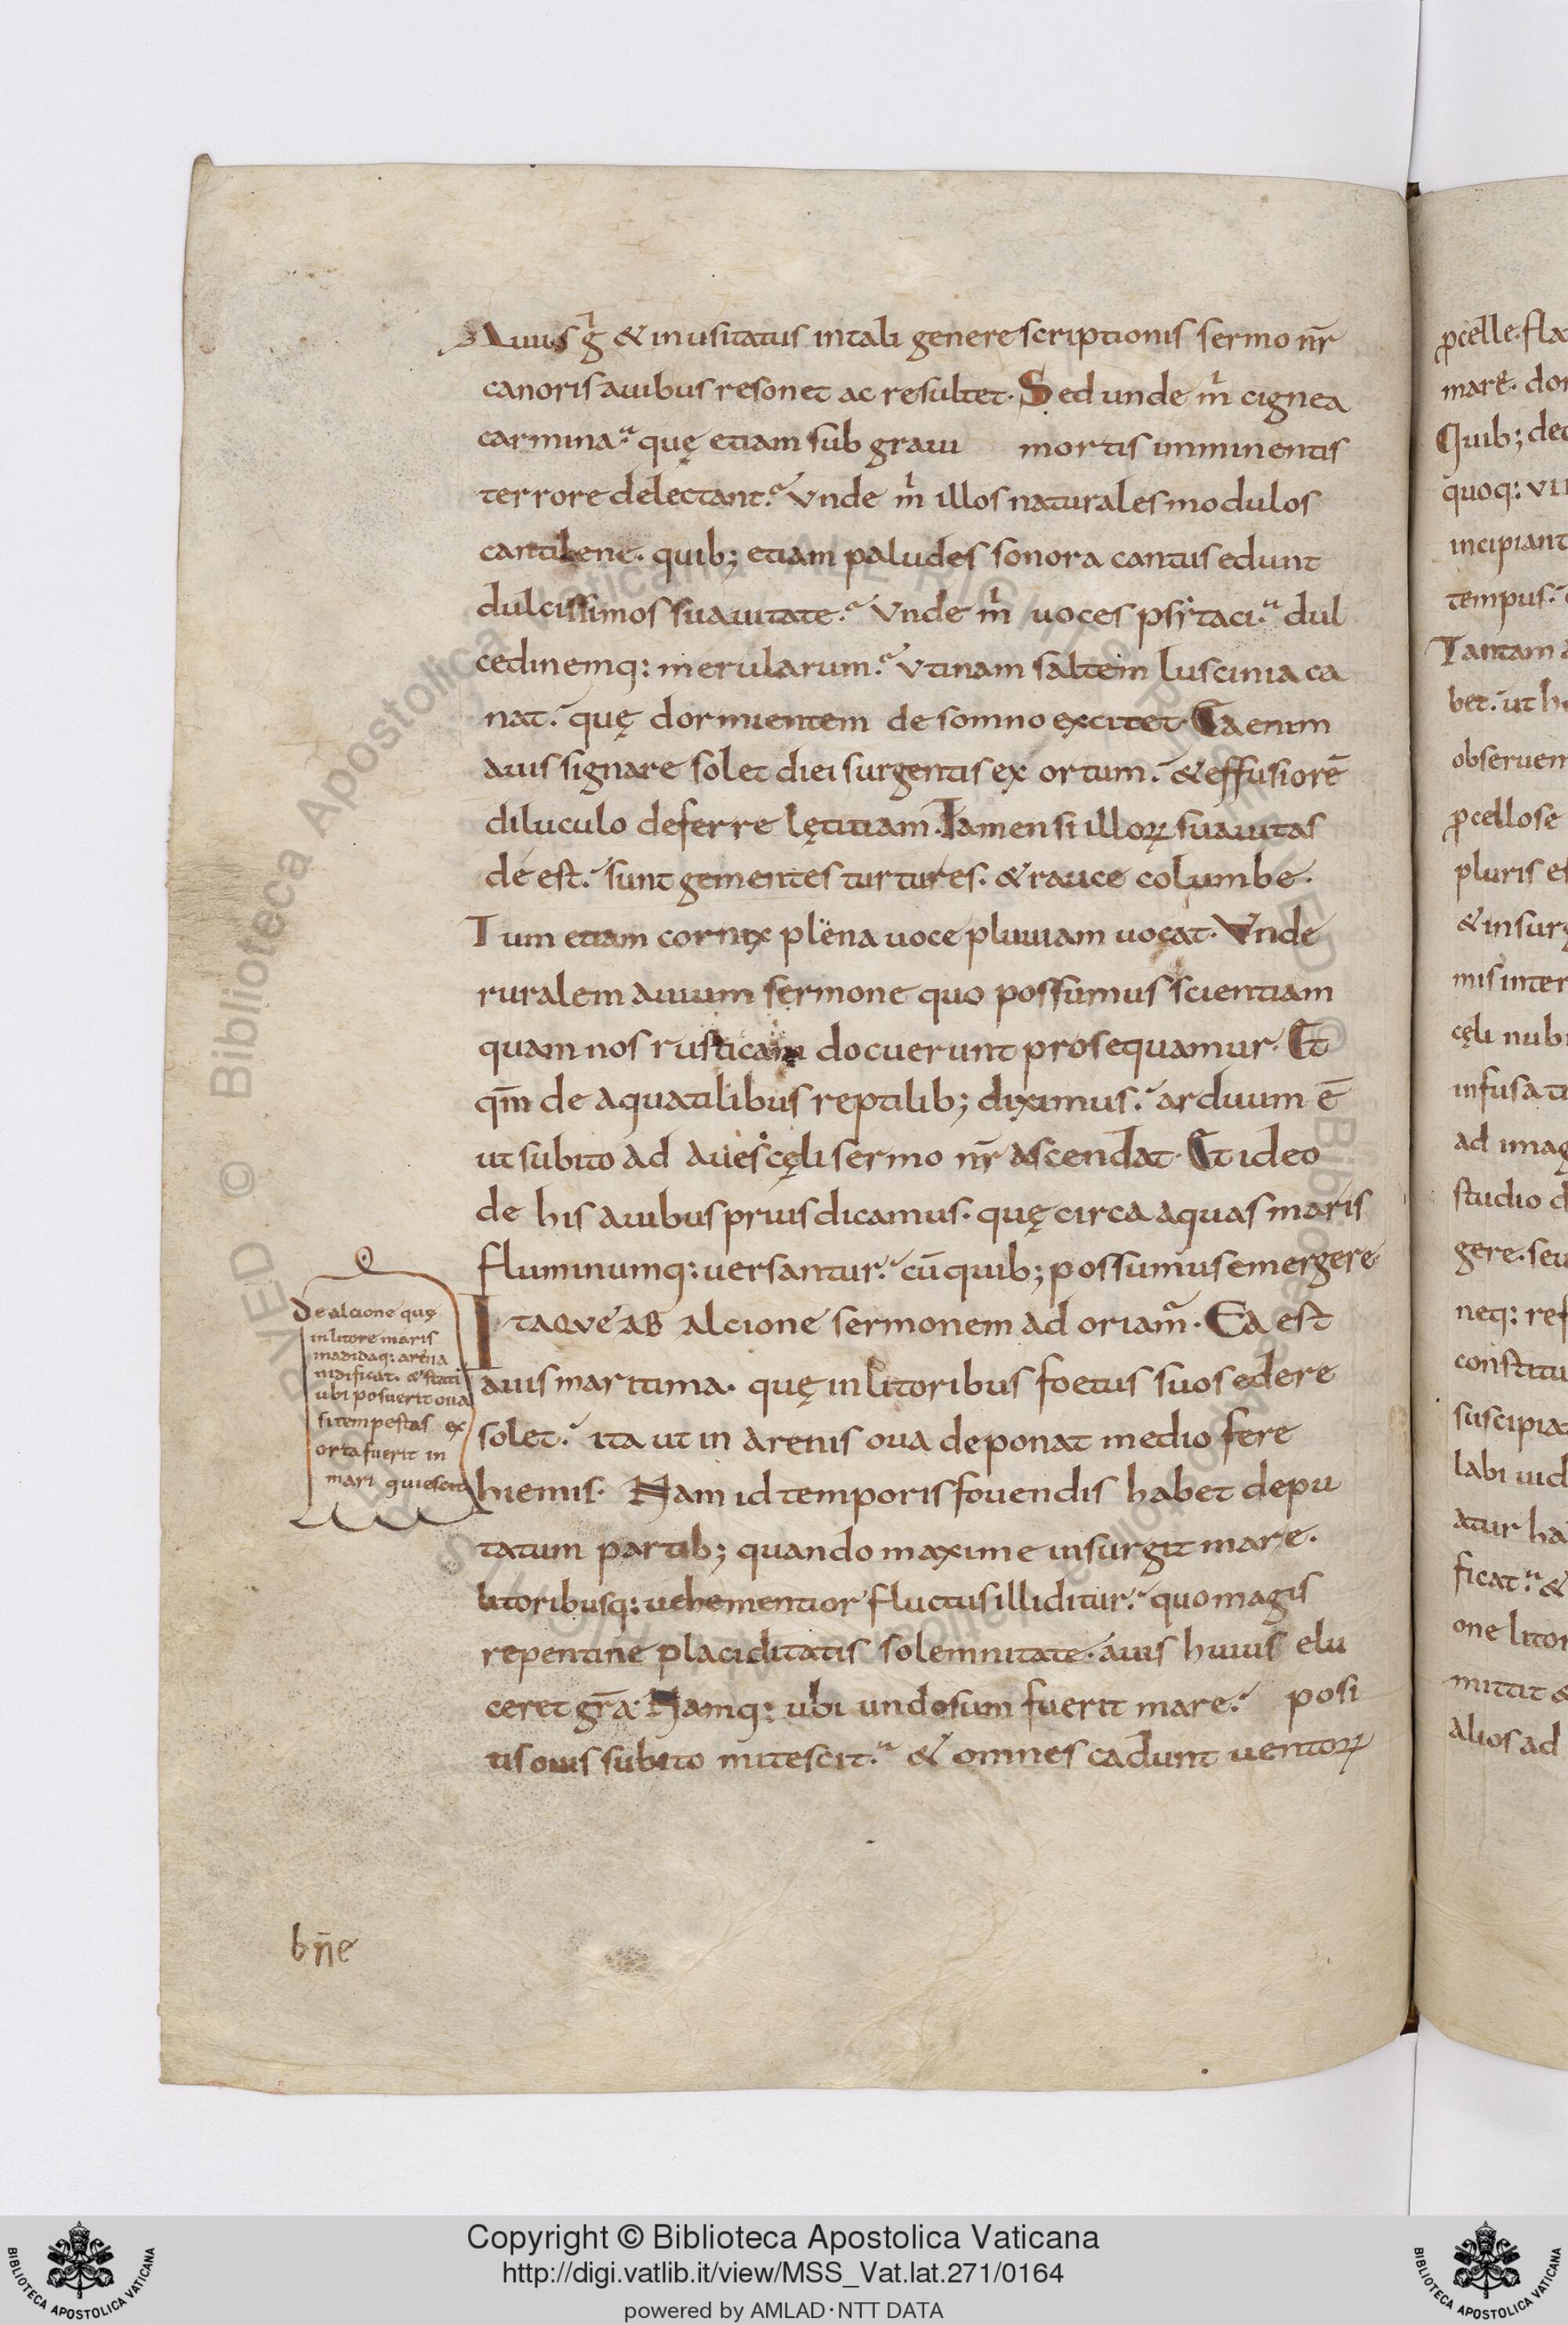 Auius g̃ & inusitatus intali genere scriptionis sermo nr̄
canoris auibus resonet ac resultet. Sed unde m̄ cignea
carmina. quę etiam sub graui mortis imminentis
terrore delectant. Vnde m̄ illos naturales modulos
cantilene. quib; etiam paludes sonora cantus edunt
dulcissimos suauitate. Vnde m̄ uoces psittaci. dul
cedinemq: merularum. Vtinam saltem luscinia ca
nat. quę dormientem de somno excitet. Ea enim
auis signare solet diei surgentis ex ortum. & effusiorē
diluculo deferre lętitiam. Tamen si illoꝝ suauitas
de est. sunt gementes turtures. & rauce columbe.
Tum etiam cornix plena uoce pluuiam uocat. Vnde
ruralem auium sermone quo possumus scientiam
quam nos rusticam docuerunt prosequamur. Et
qm̄ de aquatilibus reptilib; diximus. arduum ē
ut subito ad aues cęli sermo nr̄ ascendat. Et ideo
de his auibus prius dicamus. quę circa aquas maris
fluminumq: uersantur. cū quib; possumus emergere.
ITAQVE AB alcione sermonem ad oriam̃. Ea est
auis maritima. quę in litoribus foetus suos edere
solet. ita ut in arenis oua deponat medio fere
hiemis. Nam id temporis fouendis habet depu
tatum partib; quando maxime insurgit mare.
litoribusq: uehementior fluctus illiditur. quo magis
repentine placiditatis solemnitate. auis huius elu
ceret gr̄a. Namq: ubi undosum fuerit mare. posi
tis ouis subito mitescit. & omnes cadunt uentoꝝ
De alcione quę
in litore maris
madidaq: arena
nidificat. & stati
ubi posuerit oua
si tempestas ex
orta fuerit in
mari quiescit
bn̄e
p̄celle. fla
mare. dor
Quib; dec
quoq: VII
incipiant
tempus.
Tantam
bet. ut h
obseruen
p̄cellose
pluris es
& insurg
mis inter
cęli nubi
infusa te
ad imag
studio d
gere. seu
neq: ref
constitu
suscipiat
labi uid
atur ha
ficat. &
one litor
mittit &
alios ad
Copyright © Biblioteca Apostolica Vaticana
http://digi.vatlib.it/view/MSS_Vat.lat.271/0164
powered by AMLAD·NTT DATA
BIBLIOTECA APOSTOLICA VATICANA
BIBLIOTECA APOSTOLICA VATICANA